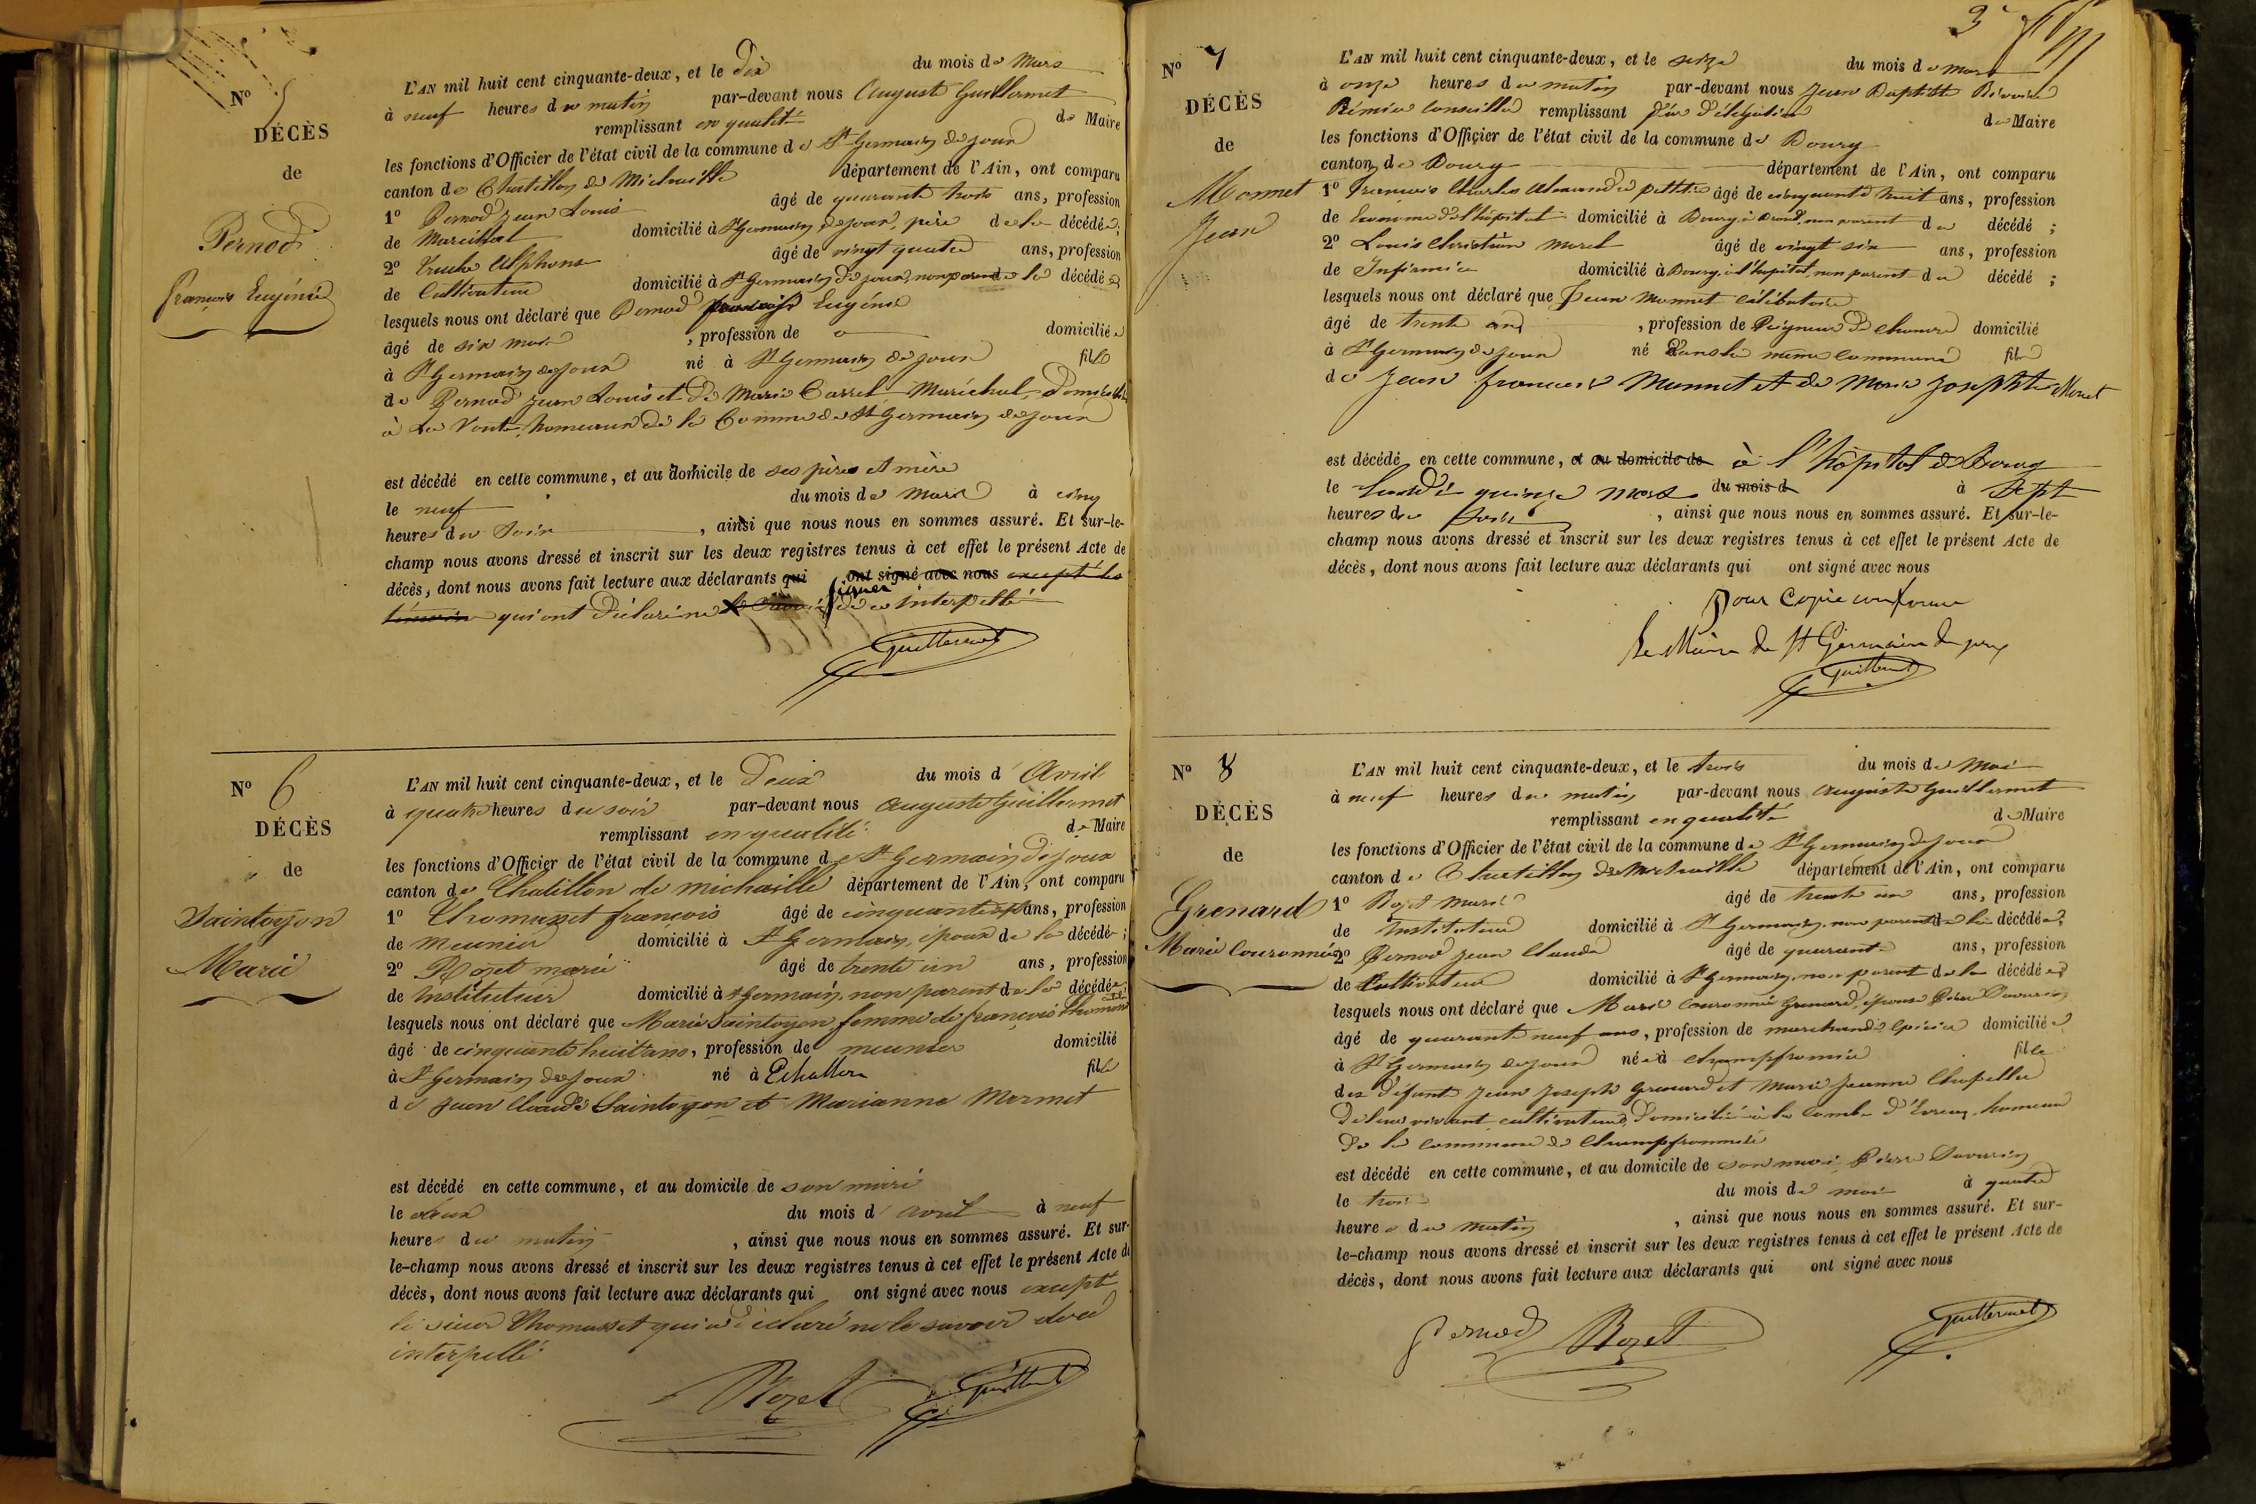 N° 5
DÉCÈS
de
Pernod
françois Eugénie
L'AN mil huit cent cinquante-deux, et le dix du mois de Mars
à neuf heures du matin par-devant nous Auguste Guillermet
remplissant en qualité de Maire
les fonctions d'Officier de l'état civil de la commune de St Germain de Joux
canton de Chatillon de Michaille département de l'Ain, ont comparu
1° Pernod Jean Louis âgé de quarante trois ans, profession
de Maréchal domicilié à St Germain de Joux, père de la décédée;
2° Alphonse âgé de vingt quatre ans, profession
de Cultivateur domicilié à St Germain de Joux, non parent de la décédée
lesquels nous ont déclaré que Pernod françoise Eugénie
âgé de six mois , profession de domiciliée
à St Germain de Joux né à St Germain de Joux fille
de Pernod Jean Louis et de Marie Carrel Maréchal domiciliés
à La Voute, hameau de la Commune de St Germain de Joux
est décédé en cette commune, et au domicile de ses père et mère
le neuf du mois de Mars à cinq
heures du Soir , ainsi que nous nous en sommes assuré. Et sur-le-
champ nous avons dressé et inscrit sur les deux registres tenus à cet effet le présent Acte de
décès, dont nous avons fait lecture aux déclarants qui ont signé avec nous excepté les
témoins qui ont déclaré ne le savoir signer de ce interpellé
Guillermet
N° 6
DÉCÈS
de
Saintoyon
Marie
L'AN mil huit cent cinquante-deux, et le Deux du mois d'Avril
à quatre heures du soir par-devant nous Auguste Guillermet
remplissant en qualité de Maire
les fonctions d'Officier de l'état civil de la commune de St Germain de Joux
canton de Chatillon de michaille département de l'Ain, ont comparu
1° Thomasset françois âgé de cinquante ans, profession
de meunier domicilié à St Germain, époux de la décédée;
2° Rozet marie âgé de trente un ans, profession
de instituteur domicilié à St Germain, non parent de la décédée;
lesquels nous ont déclaré que Marie Saintoyon femme de françois Thomasset
âgé de cinquante huit ans, profession de meunier domicilié
à St Germain de Joux né à Echallon fille
de Jean Claude Saintoyon et Marianne Mermet
est décédé en cette commune, et au domicile de son mari
le deux du mois d'avril à neuf
heures du matin , ainsi que nous nous en sommes assuré. Et sur-
le-champ nous avons dressé et inscrit sur les deux registres tenus à cet effet le présent Acte de
décès, dont nous avons fait lecture aux déclarants qui ont signé avec nous excepté
le sieur Thomasset qui a déclaré ne le savoir de ce
interpellé
Rozet Guillermet
3
N° 7
DÉCÈS
de
Monnet
Jean
L'AN mil huit cent cinquante-deux, et le seize du mois de mars
à onze heures du matin par-devant nous Jean Baptiste
Premier Conseiller remplissant par délégation de Maire
les fonctions d'Officier de l'état civil de la commune de Bourg
canton de Bourg département de l'Ain, ont comparu
1° françois Charles Alexandre âgé de cinquante huit ans, profession
de Econome de l'hôpital domicilié à Bourg, non parent du décédé;
2° Louis Christian Morel âgé de vingt six ans, profession
de Infirmier domicilié à Bourg, à l'hôpital, non parent du décédé;
lesquels nous ont déclaré que Jean Monnet célibataire
âgé de trente ans , profession de Peigneur de chanvre domicilié
à St Germain de Joux né dans la même Commune fils
de Jean françois Monnet et de Marie Josephte Monet
est décédé en cette commune, et au domicile de à l'hôpital de Bourg
le Lundi quinze mars du mois d à Sept
heures du Soir , ainsi que nous nous en sommes assuré. Et sur-le-
champ nous avons dressé et inscrit sur les deux registres tenus à cet effet le présent Acte de
décès, dont nous avons fait lecture aux déclarants qui ont signé avec nous
Pour Copie conforme
Le Maire de St Germain de joux
Guillermet
N° 8
DÉCÈS
de
Grenard
Marie Couronnée
L'AN mil huit cent cinquante-deux, et le trois du mois de Mai
à neuf heures du matin par-devant nous Auguste Guillermet
remplissant en qualité de Maire
les fonctions d'Officier de l'état civil de la commune de St Germain de Joux
canton de Chatillon de Michaille département de l'Ain, ont comparu
1° Rozet Marie âgé de trente un ans, profession
de Instituteur domicilié à St Germain, non parent de la décédée;
2° Pernod Jean Claude âgé de quarante ans, profession
de Cultivateur domicilié à St Germain, non parent de la décédée
lesquels nous ont déclaré que Marie Couronnée Grenard, épouse Pierre Savarin
âgé de quarante neuf ans, profession de marchande épicier domiciliée
à St Germain de Joux née à champfromier fille
des défunt Jean Joseph Grenard et Marie Jeanne Chapelle
de leur vivant cultivateurs, domiciliés à la Combe d'Evuaz hameau
de la commune de Champfromier
est décédé en cette commune, et au domicile de son mari Pierre Savarin
le trois du mois de mai à quatre
heures du Matin , ainsi que nous nous en sommes assuré. Et sur-
le-champ nous avons dressé et inscrit sur les deux registres tenus à cet effet le présent Acte de
décès, dont nous avons fait lecture aux déclarants qui ont signé avec nous
Pernod Rozet Guillermet